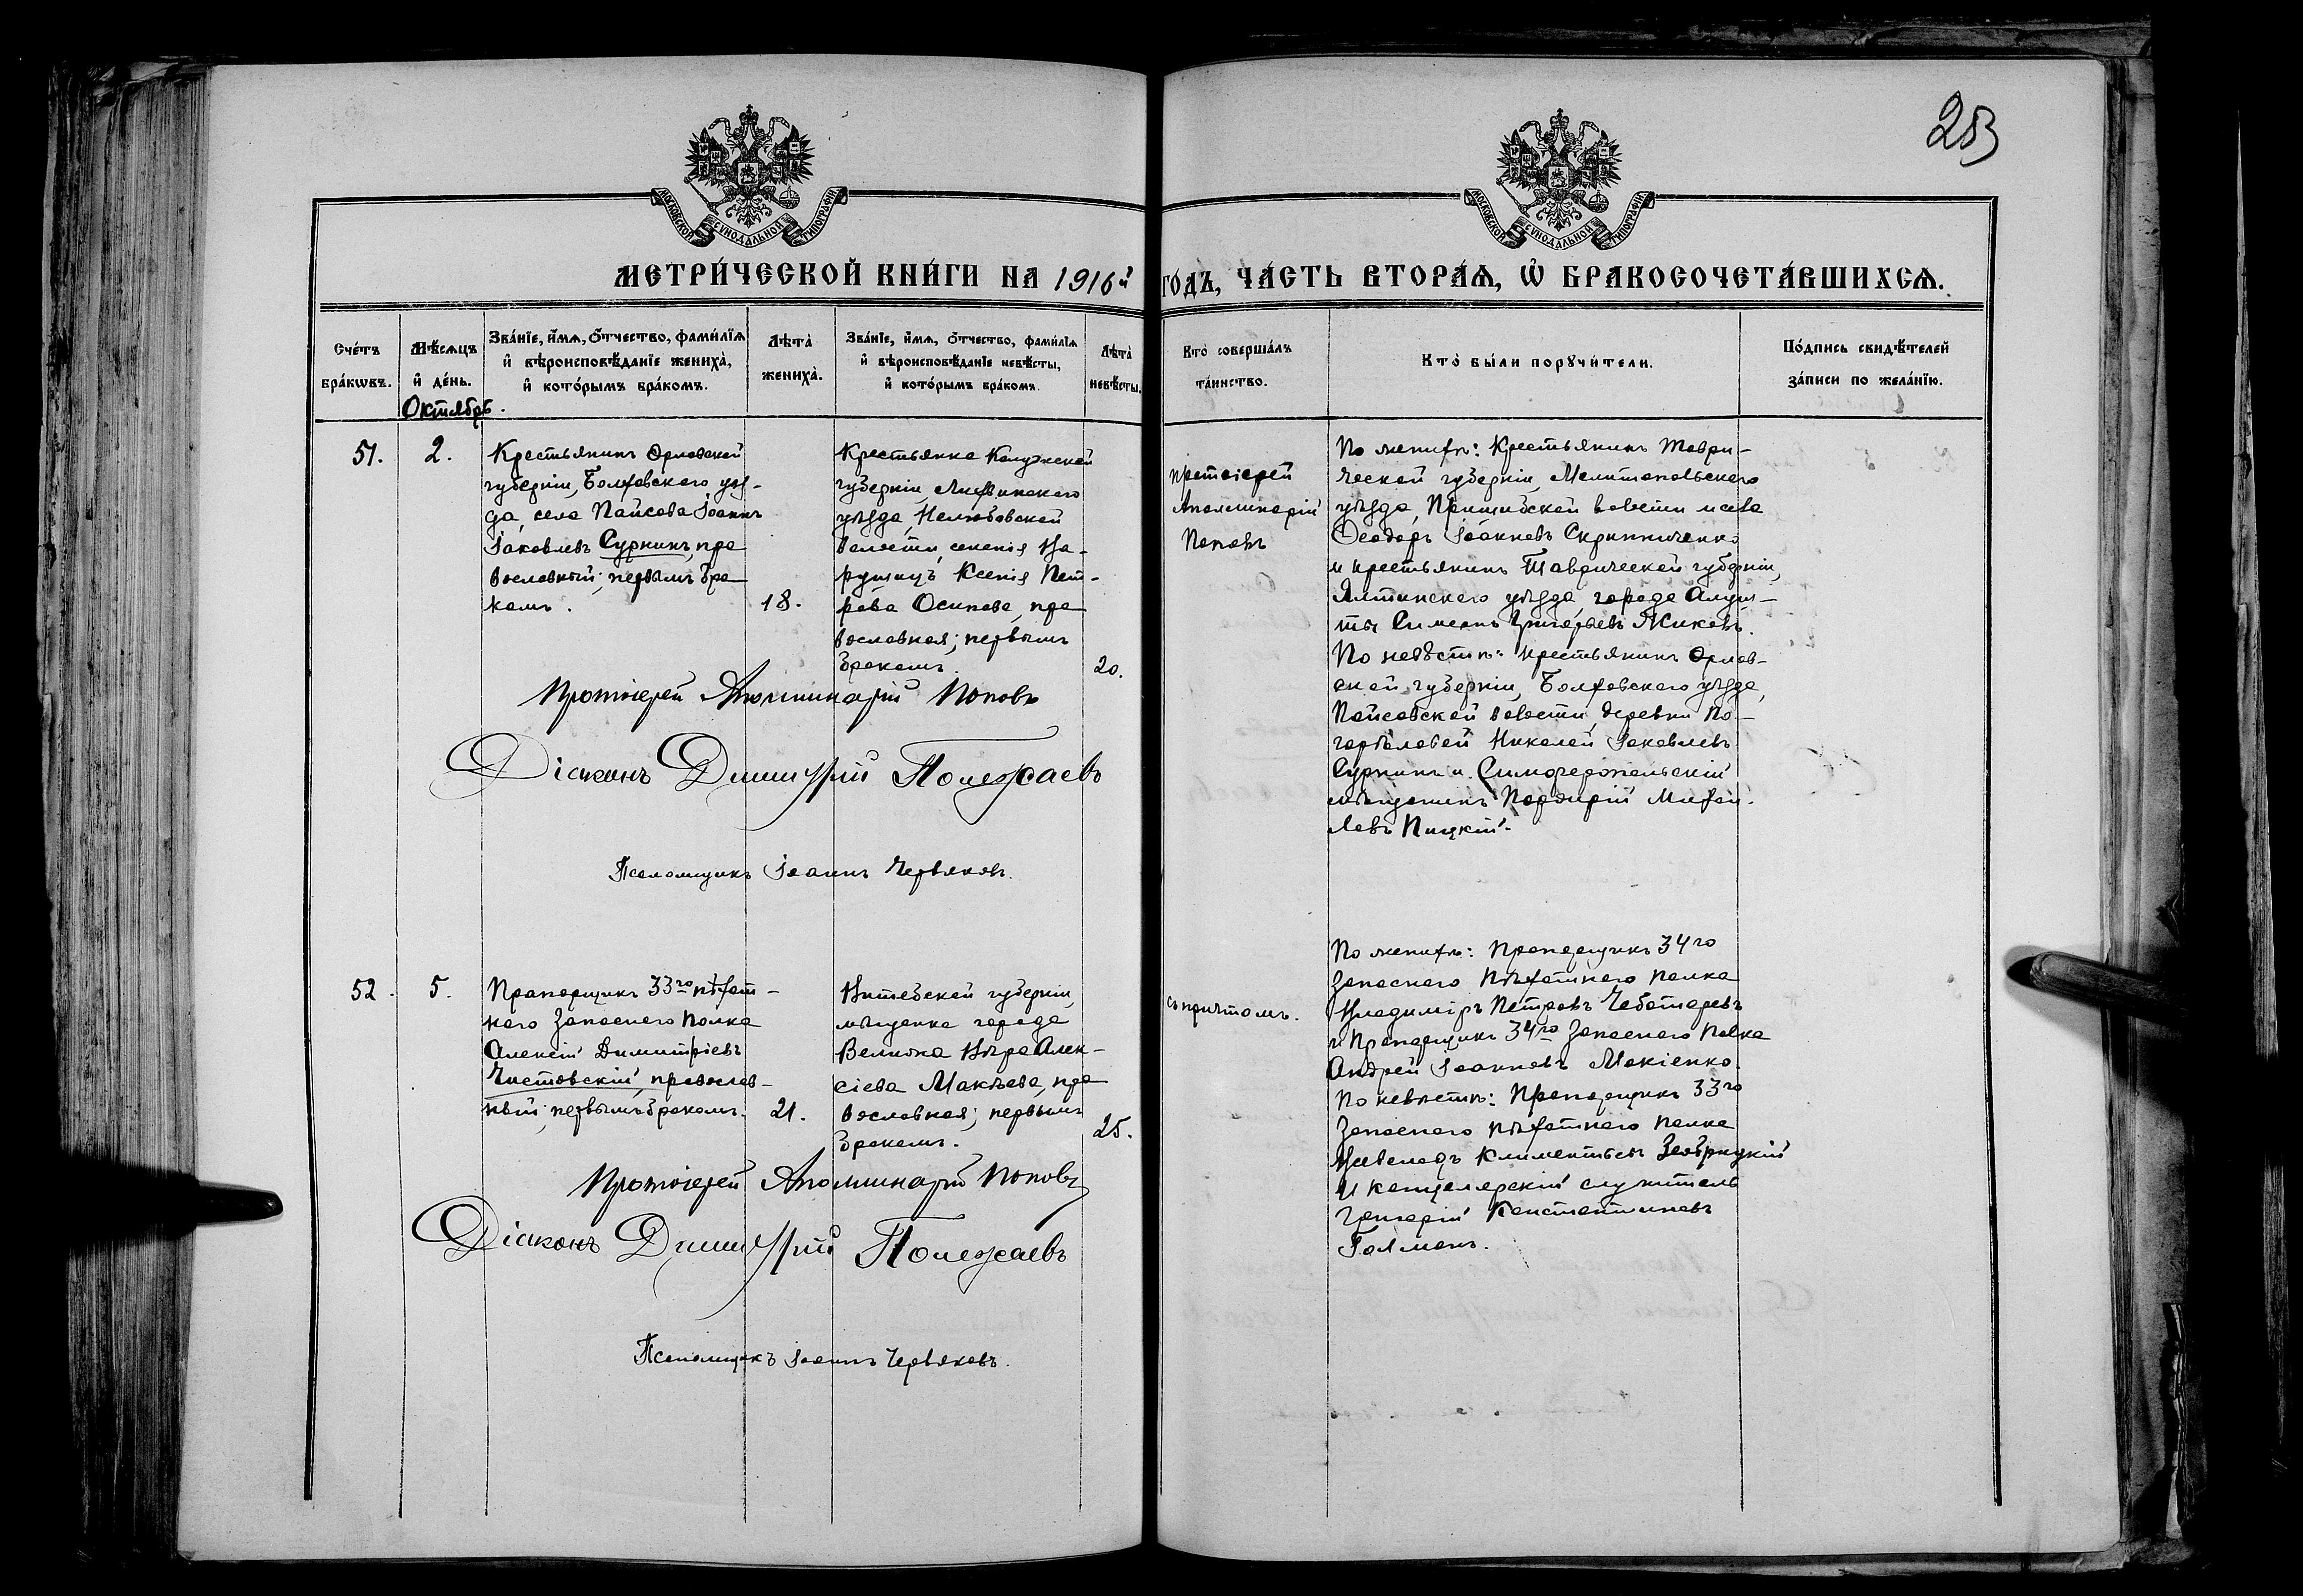 283
МОСКОВСКОЙ СѴНОДАЛЬНОЙ ТИПОГРАФІИ
МОСКОВСКОЙ СѴНОДАЛЬНОЙ ТИПОГРАФІИ
МЕТРИ́ЧЕСКОЙ КНИ́ГИ НА 1916й ГО́ДЪ, ЧА́СТЬ ВТОРА́Ѧ, Ѡ҆ БРАКОСОЧЕТА́ВШИХСѦ.
Сче́тъ
бра́кѡвъ.
Мѣ́сѧцъ
и҆ де́нь.
Октябрь.
Зва́нїе, и҆́мѧ, о҆́тчество, фами́лїѧ
и҆ вѣроисповѣ́данїе жениха̀,
и҆ кото́рымъ бра́комъ.
Лѣта̀
жениха̀.
Зва́нїе, и҆́мѧ, о҆́тчество, фами́лїѧ
и҆ вѣроисповѣ́данїе невѣ́сты,
и҆ кото́рымъ бра́комъ.
Лѣта̀
невѣ́сты.
Кто̀ соверша́лъ
та́инство.
Кто̀ бы́ли порꙋчи́тели.
По́дпись свидѣ́телей
за́писи по жела́нїю.
51.
2.
Крестьянинъ Орловской
губерніи, Болховскаго уѣз-
да, села Пайсова Іоаннъ
Іаковлевъ Суркинъ, пра
вославный; первымъ бра
комъ.
18.
Крестьянка Калужской
губерніи, Лихвинскаго
уѣзда, Нелюбовской
волости, селенія
Ксенія Пет-
рова Осипова, пра
вославная; первымъ
бракомъ.
20.
Протоіерей
Аполлинарій
Поповъ
По женихѣ: Крестьянинъ Таври-
ческой губерніи, Мелитопольскаго
уѣзда, Пришибской волости и села
Ѳеодоръ Іоанновъ Скрипниченко
и крестьянинъ Таврической губерніи,
Ялтинскаго уѣзда города Алуш-
ты Симеонъ Григорьевъ Жиковъ.
По невѣстѣ: крестьянинъ Орлов-
ской губерніи, Болховскаго уѣзда,
Пайсовской волости, деревни По-
горѣловой Николай Іаковлевъ
Суркинъ и Симферопольскій
мѣщанинъ Порфирій Михаи-
ловъ Пицкій.
Протоіерей Аполлинарій Поповъ
Діаконъ Димитрій Полежаевъ
Псаломщикъ Іоаннъ Червяковъ.
52.
5.
Прапорщикъ 33го пѣхот-
наго Запаснаго Полка
Алексій Димитріевъ
Чистовскій, православ-
ный; первымъ бракомъ.
21.
Витебской губерніи,
мѣщанка города
Велижа Вѣра Алек-
сіева Макѣева, пра
вославная; первымъ
бракомъ.
25.
съ причтомъ.
По женихѣ: Прапорщикъ 34го
Запаснаго Пѣхотнаго полка
Владиміръ Петровъ Чеботаревъ
и Прапорщикъ 34го Запаснаго Полка
Андрей Іоанновъ Макіенко.
По невѣстѣ: Прапорщикъ 33го
Запаснаго пѣхотнаго полка
Всеволодъ Климентьевъ
и канцелярскій служитель
Григорій Константиновъ
Галманъ.
Протоіерей Аполлинарій Поповъ
Діаконъ Димитрій Полежаевъ
Псаломщикъ Іоаннъ Червяковъ.